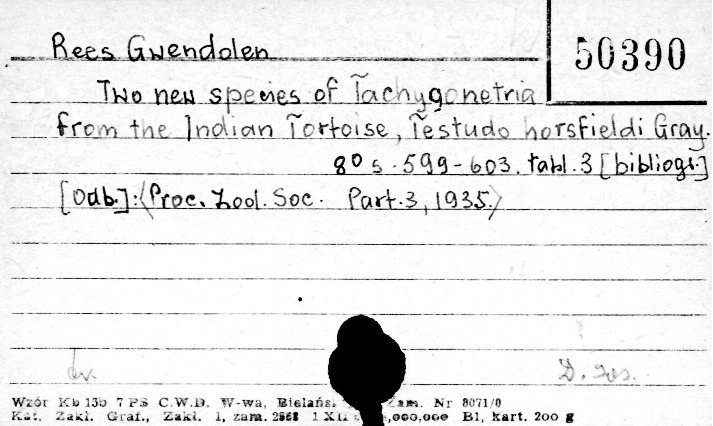 Rees Gwendolen
50390
Two new species of Tachygonetria
from the Indian Tortoise, Testudo horsfieldi Gray.
8° s. 599-603. tabl. 3 [bibliogr.]
[Odb.]: (Proc. Zool. Soc. Part. 3, 1935.)
Wzór Kb 15b 7 PS C.W.D. W-wa, Zam. Nr 8071/0
Kat. Zakł. Graf., Zakł. 1, zam. 1 XII ,000,000 B1, kart. 200 g